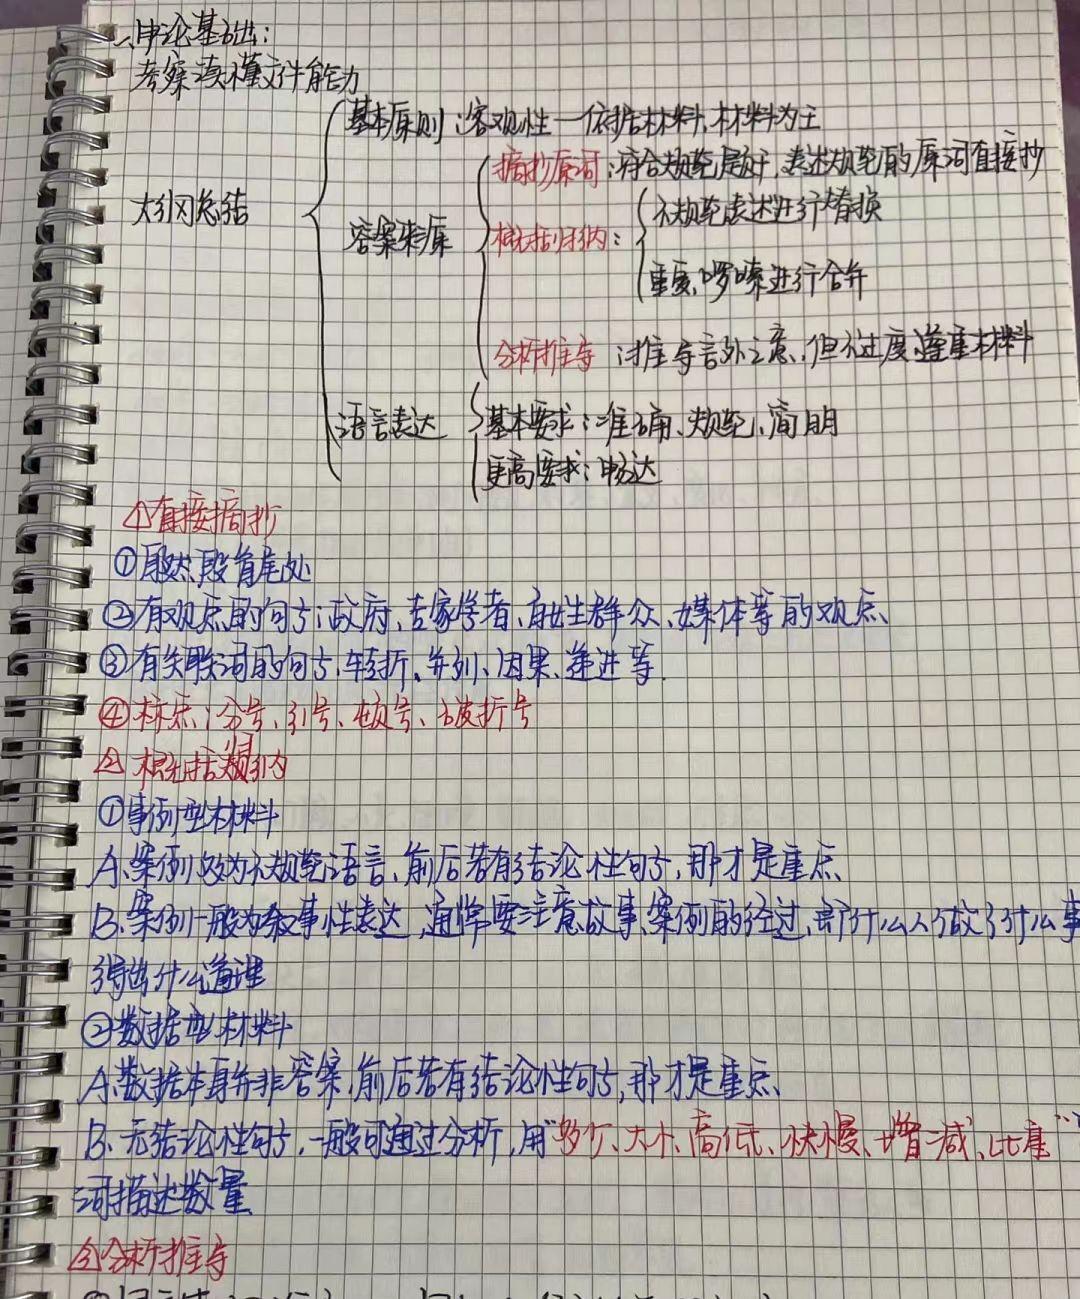 一、申论基础:
考察读懂文件能力
大纲总结
基本原则:客观性—依据材料,材料为主
答案来源
摘抄原词:符合规范是好,表达规范的原词直接抄
概括归纳:
不规范表达进行替换
重复、啰嗦进行合并
分析推导:推导言外之意,但不过度,尊重材料
语言表达
基本要求:准确、规范、简明
更高要求:畅达
△直接摘抄
①段首尾处
②有观点的句子:政府、专家学者、百姓群众、媒体等的观点、
③有关联词的句子,转折、并列、因果、递进等.
④标点:分号、引号、顿号、破折号
△概括归纳
①事例型材料
A、案例为不规范语言,前后若有结论性句子,那才是重点、
B、案例一般为叙事性表达,通常要注意故事、案例的经过,即什么人做了什么事
得出什么道理
②数据型材料
A、数据本身并非答案,前后若有结论性句子,那才是重点、
B、无结论性句子,一般可通过分析,用"多少、大小、高低、快慢、增减、比重"
词描述数量
△分析推导